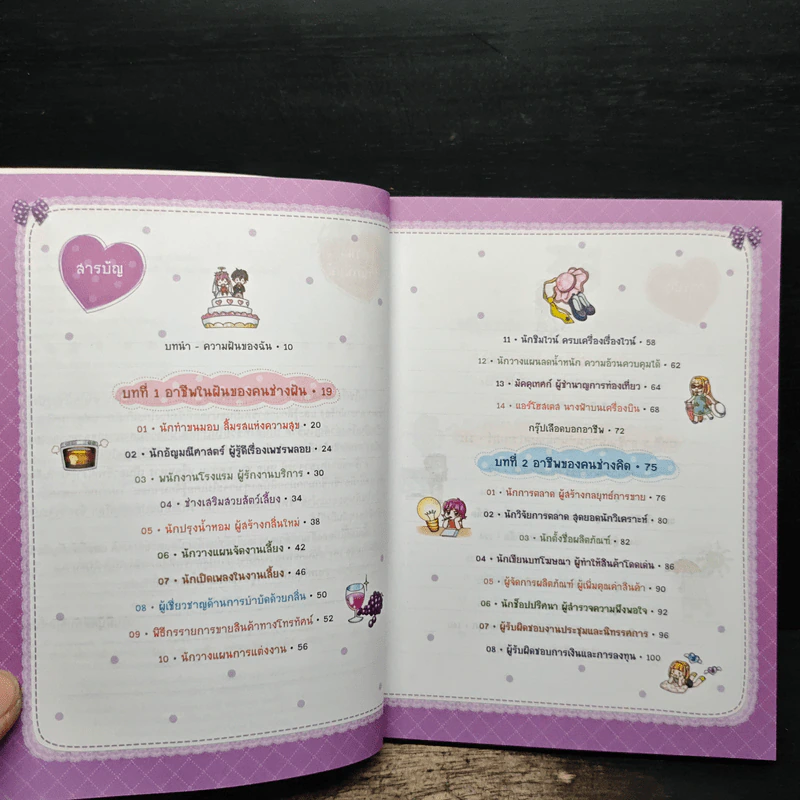 สารบัญ
บทนำ - ความฝันของฉัน • 10
บทที่ 1 อาชีพในฝันของคนช่างฝัน • 19
01 • นักทำขนมอบ ลิ้มรสแห่งความสุข • 20
02 • นักอัญมณีศาสตร์ ผู้รู้ดีเรื่องเพชรพลอย • 24
03 • พนักงานโรงแรม ผู้รักงานบริการ • 30
04 • ช่างเสริมสวยสัตว์เลี้ยง • 34
05 • นักปรุงน้ำหอม ผู้สร้างกลิ่นใหม่ • 38
06 • นักวางแผนจัดงานเลี้ยง • 42
07 • นักเปิดเพลงในงานเลี้ยง • 46
08 • ผู้เชี่ยวชาญด้านการบำบัดด้วยกลิ่น • 50
09 • พิธีกรรายการขายสินค้าทางโทรทัศน์ • 52
10 • นักวางแผนการแต่งงาน • 56
11 • นักชิมไวน์ ครบเครื่องเรื่องไวน์ • 58
12 • นักวางแผนลดน้ำหนัก ความอ้วนควบคุมได้ • 62
13 • มัคคุเทศก์ ผู้ชำนาญการท่องเที่ยว • 64
14 • แอร์โฮสเตส นางฟ้าบนเครื่องบิน • 68
กรุ๊ปเลือดบอกอาชีพ • 72
บทที่ 2 อาชีพของคนช่างคิด • 75
01 • นักการตลาด ผู้สร้างกลยุทธ์การขาย • 76
02 • นักวิจัยการตลาด สุดยอดนักวิเคราะห์ • 80
03 • นักตั้งชื่อผลิตภัณฑ์ • 82
04 • นักเขียนบทโฆษณา ผู้ทำให้สินค้าโดดเด่น • 86
05 • ผู้จัดการผลิตภัณฑ์ ผู้เพิ่มคุณค่าสินค้า • 90
06 • นักช็อปปริศนา ผู้สำรวจความพึงพอใจ • 92
07 • ผู้รับผิดชอบงานประชุมและนิทรรศการ • 96
08 • ผู้รับผิดชอบการเงินและการลงทุน • 100